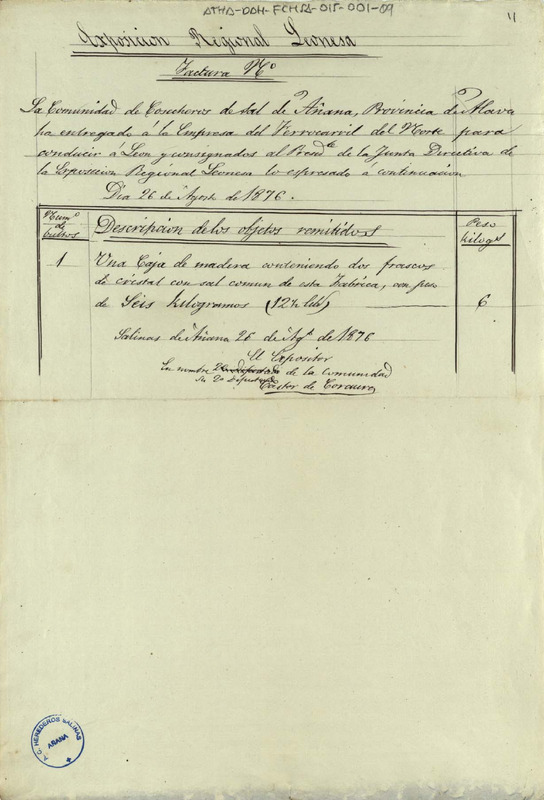 ATHA-DAH-FCHSA-015-001-09
11
Exposicion Regional Leonesa
Factura Nº
La Comunidad de Cosecheros de sal de Añana, Provincia de Alava
ha entregado á la Empresa del Ferrocarril del Norte para
conducir á Leon y consignados al Presidte de la Junta Directiva de
la Exposicion Regional Leonesa lo espresado á continuacion
Dia 26 de Agosto de 1876.
Numº de bultos
Descripcion de los objetos remitidos
Peso kilogs
1
Una Caja de madera conteniendo dos frascos
de cristal con sal comun de esta Fabrica, con peso
de Seis kilogramos (12½ lbs)
6
Salinas de Añana 26 de Agto de 1876
El Expositor
En nombre de la comunidad
Su 2º Diputado
Castor de
A.C. HEREDEROS SALINAS
AÑANA